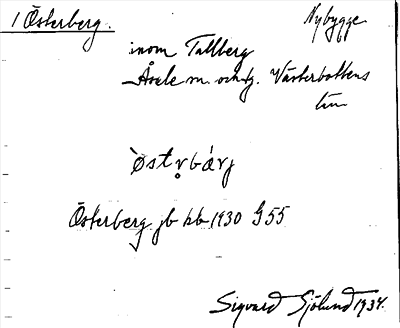 1 Österberg. Nybygge
inom Tallberg
Åsele sn. och tg. Västerbottens
län
`östr̥bárj
Österberg jb kb 1930 G55
Sigvard Sjölund 1934.